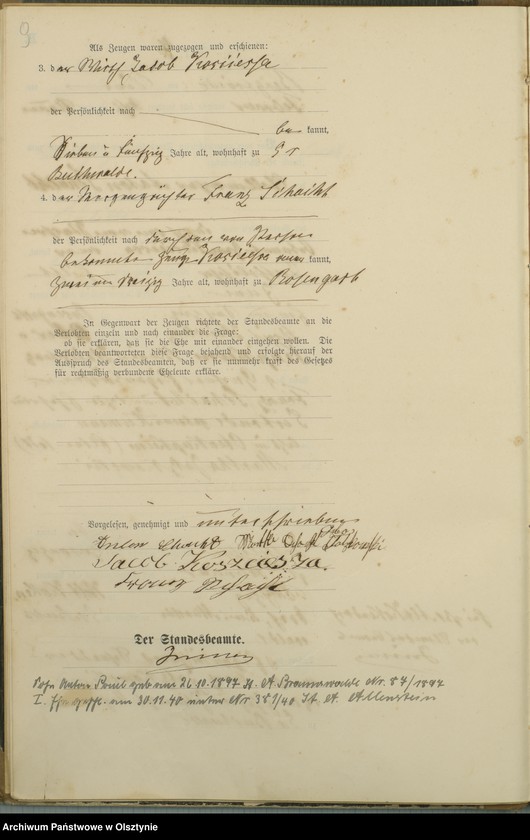 9
Als Zeugen waren zugezogen und erschienen:
3. der Wirth Jacob
der Persönlichkeit nach
be kannt,
Sieben u fünfzig Jahre alt, wohnhaft zu Gr
Buchwalde.
4. der Franz Schacht
der Persönlichkeit nach durch den von Person
bekannten Zeugen kannt,
zwei und dreißig Jahre alt, wohnhaft zu Rosengarth
In Gegenwart der Zeugen richtete der Standesbeamte an die
Verlobten einzeln und nach einander die Frage:
ob sie erklären, daß sie die Ehe mit einander eingehen wollen. Die
Verlobten beantworteten diese Frage bejahend und erfolgte hierauf der
Ausspruch des Standesbeamten, daß er sie nunmehr kraft des Gesetzes
für rechtmäßig verbundene Eheleute erkläre.
Vorgelesen, genehmigt und unterschrieben
Anton Schacht Martha Schacht geb.
Jacob
Franz Schacht
Der Standesbeamte.
Sohn Anton Paul geb am 26.10.1897 St. A Braunswalde Nr. 87/1897
I. Ehe geschl. am 30.11.40 unter Nr 381/40 St. A. Allenstein
Archiwum Państwowe w Olsztynie